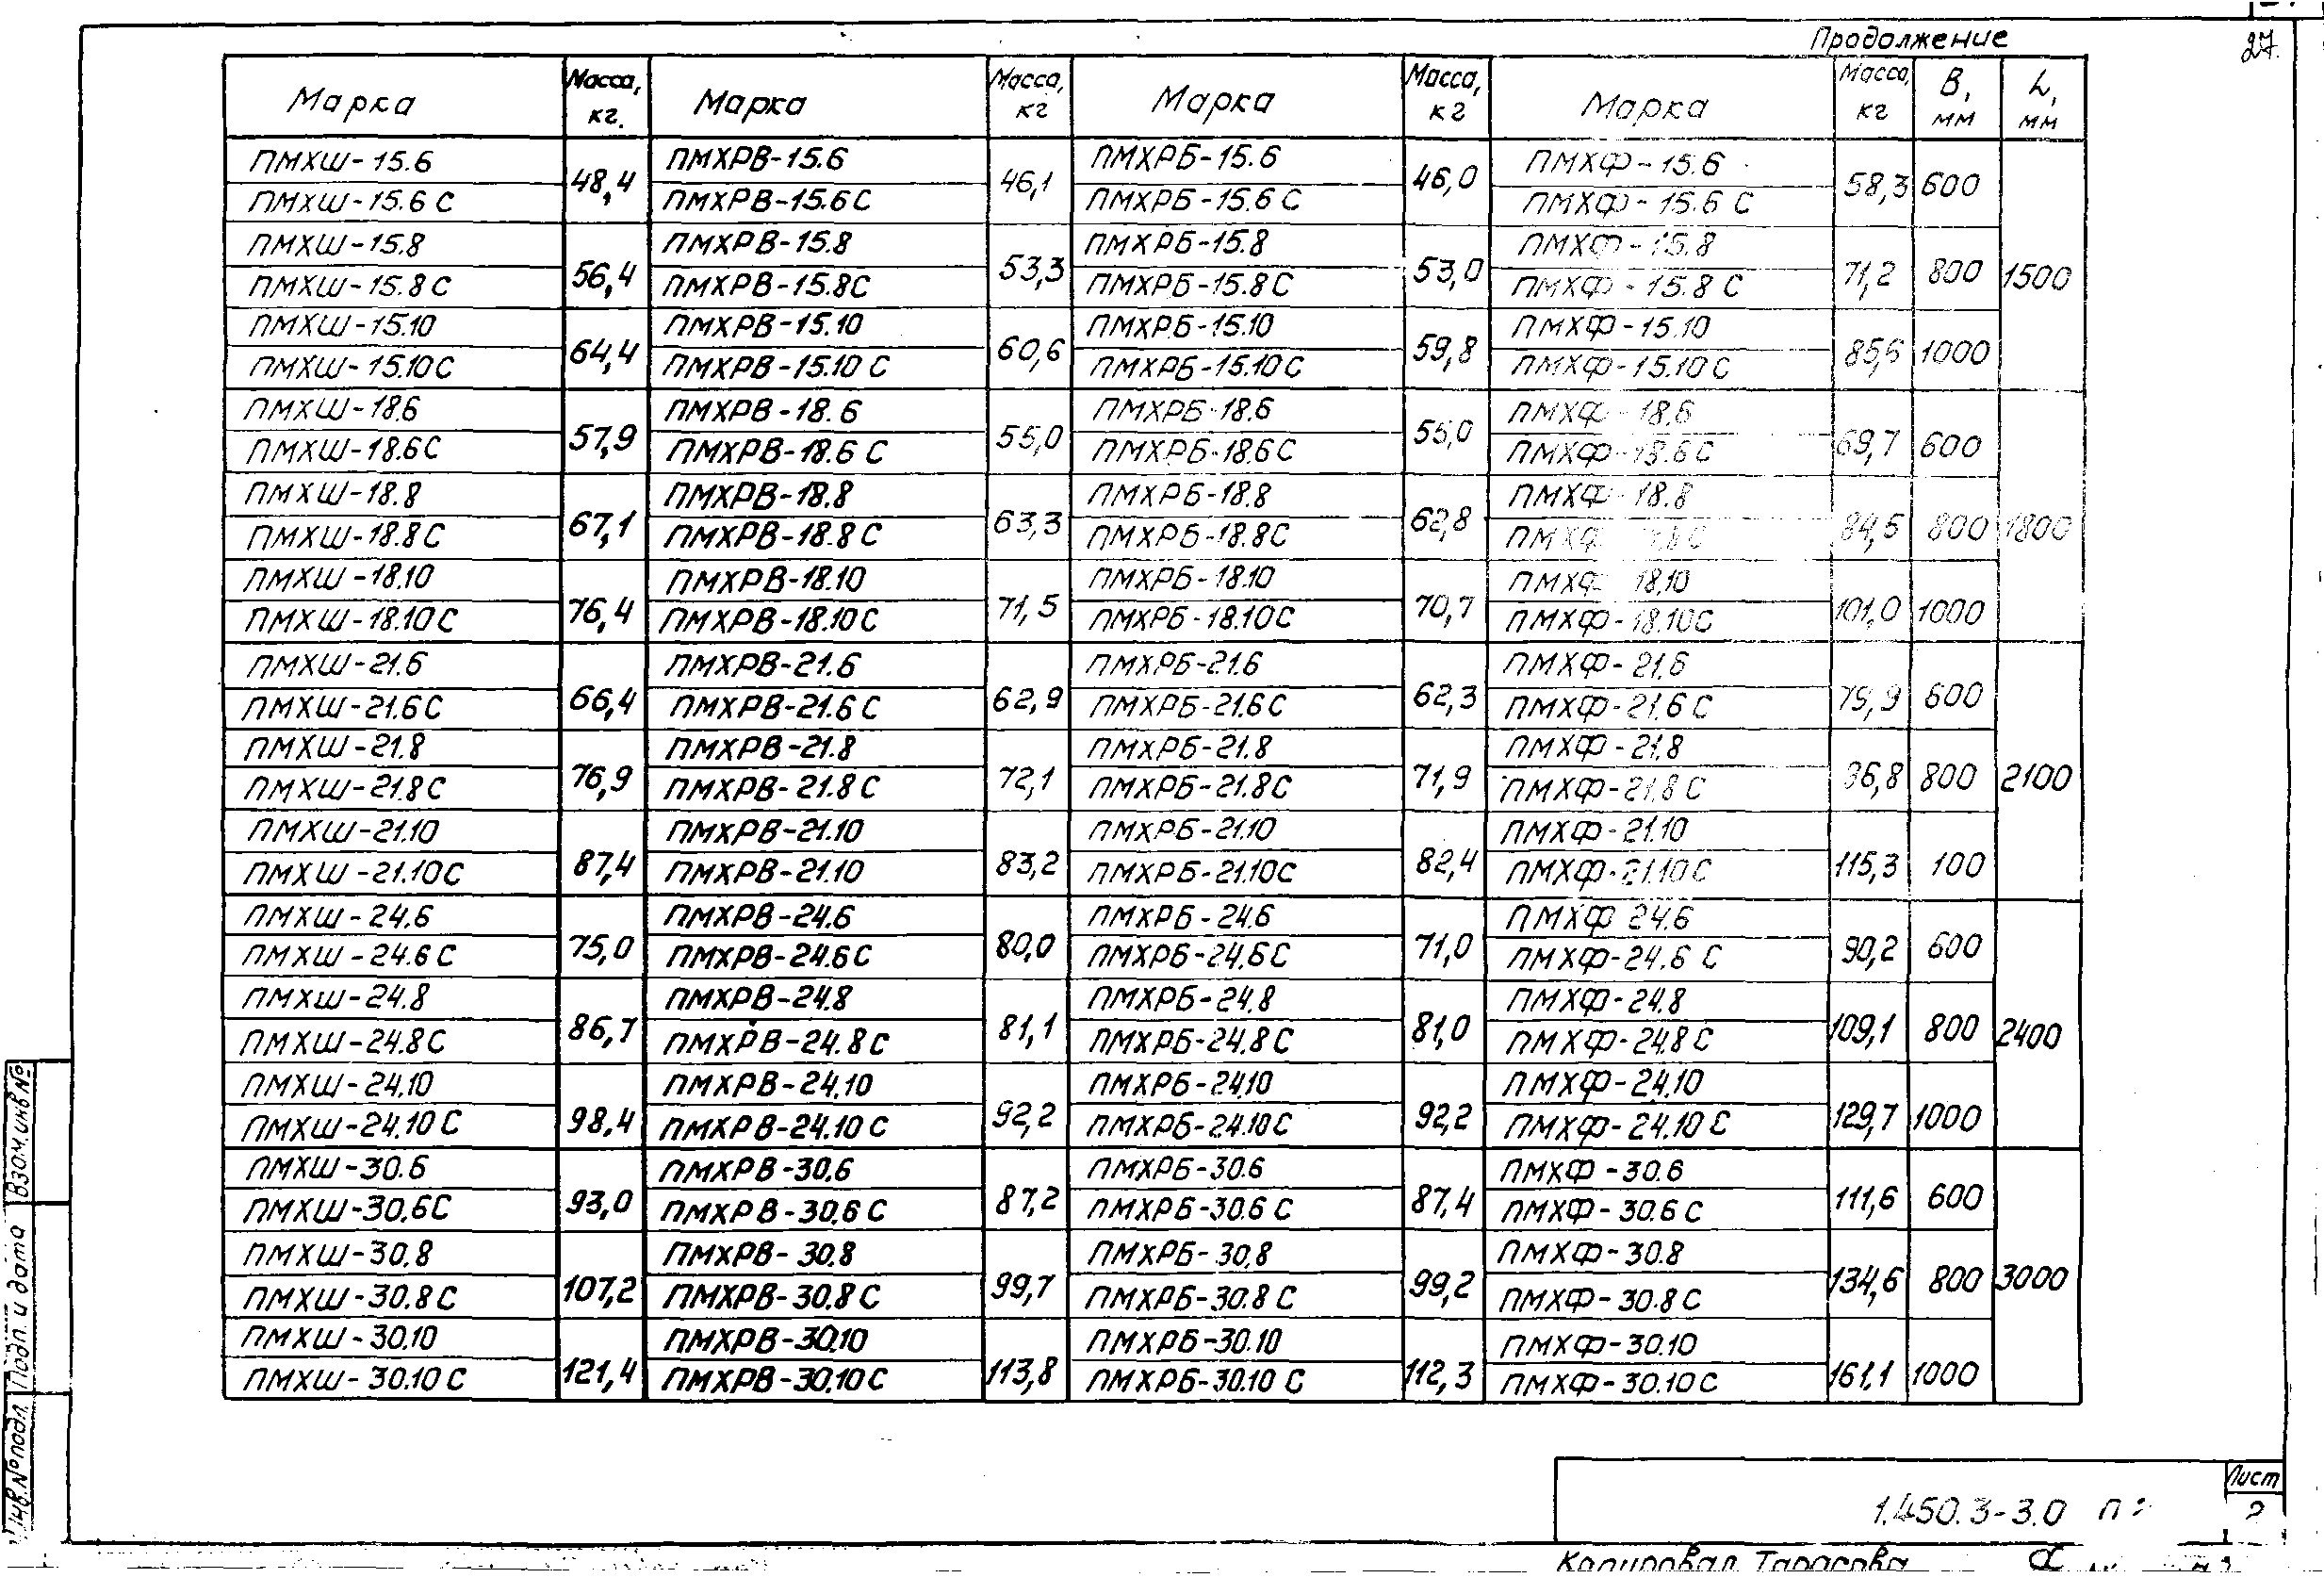 Продолжение
27.
Марка Масса, кг. Марка Масса, кг Марка Масса, кг Марка Масса, кг В, мм L, мм
ПМХШ-15.6 48,4 ПМХРВ-15.6 46,1 ПМХРБ-15.6 46,0 ПМХФ-15.6 58,3 600 1500
ПМХШ-15.6 С ПМХРВ-15.6 С ПМХРБ-15.6 С ПМХФ-15.6 С
ПМХШ-15.8 56,4 ПМХРВ-15.8 53,3 ПМХРБ-15.8 53,0 ПМХФ-15.8 71,2 800
ПМХШ-15.8 С ПМХРВ-15.8С ПМХРБ-15.8 С ПМХФ-15.8 С
ПМХШ-15.10 64,4 ПМХРВ-15.10 60,6 ПМХРБ-15.10 59,8 ПМХФ-15.10 85,6 1000
ПМХШ-15.10С ПМХРВ-15.10 С ПМХРБ-15.10С ПМХФ-15.10С
ПМХШ-18.6 57,9 ПМХРВ-18.6 55,0 ПМХРБ-18.6 55,0 ПМХФ-18.6 69,7 600 1800
ПМХШ-18.6С ПМХРВ-18.6 С ПМХРБ-18.6С ПМХФ-18.6С
ПМХШ-18.8 67,1 ПМХРВ-18.8 63,3 ПМХРБ-18.8 62,8 ПМХФ-18.8 84,5 800
ПМХШ-18.8С ПМХРВ-18.8 С ПМХРБ-18.8С
ПМХШ-18.10 76,4 ПМХРВ-18.10 71,5 ПМХРБ-18.10 70,7 ПМХФ 18.10 101,0 1000
ПМХШ-18.10С ПМХРВ-18.10С ПМХРБ-18.10С ПМХФ-18.10С
ПМХШ-21.6 66,4 ПМХРВ-21.6 62,9 ПМХРБ-21.6 62,3 ПМХФ-21.6 79,9 600 2100
ПМХШ-21.6С ПМХРВ-21.6 С ПМХРБ-21.6 С ПМХФ-21.6 С
ПМХШ-21.8 76,9 ПМХРВ-21.8 72,1 ПМХРБ-21.8 71,9 ПМХФ-21.8 96,8 800
ПМХШ-21.8С ПМХРВ-21.8 С ПМХРБ-21.8С ПМХФ-21.8 С
ПМХШ-21.10 87,4 ПМХРВ-21.10 83,2 ПМХРБ-21.10 82,4 ПМХФ-21.10 115,3 100
ПМХШ-21.10С ПМХРВ-21.10 ПМХРБ-21.10С ПМХФ-21.10С
ПМХШ-24.6 75,0 ПМХРВ-24.6 80,0 ПМХРБ-24.6 71,0 ПМХФ 24.6 90,2 600 2400
ПМХШ-24.6 С ПМХРВ-24.6С ПМХРБ-24.6С ПМХФ-24.6 С
ПМХШ-24.8 86,7 ПМХРВ-24.8 81,1 ПМХРБ-24.8 81,0 ПМХФ-24.8 109,1 800
ПМХШ-24.8С ПМХРВ-24.8 С ПМХРБ-24.8 С ПМХФ-24.8 С
ПМХШ-24.10 98,4 ПМХРВ-24.10 92,2 ПМХРБ-24.10 92,2 ПМХФ-24.10 129,7 1000
ПМХШ-24.10 С ПМХРВ-24.10 С ПМХРБ-24.10С ПМХФ-24.10 С
ПМХШ-30.6 93,0 ПМХРВ-30.6 87,2 ПМХРБ-30.6 87,4 ПМХФ-30.6 111,6 600 3000
ПМХШ-30.6С ПМХРВ-30.6 С ПМХРБ-30.6 С ПМХФ-30.6 С
ПМХШ-30.8 107,2 ПМХРВ-30.8 99,7 ПМХРБ-30.8 99,2 ПМХФ-30.8 134,6 800
ПМХШ-30.8 С ПМХРВ-30.8 С ПМХРБ-30.8 С ПМХФ-30.8 С
ПМХШ-30.10 121,4 ПМХРВ-30.10 113,8 ПМХРБ-30.10 112,3 ПМХФ-30.10 161,1 1000
ПМХШ-30.10 С ПМХРВ-30.10 С ПМХРБ-30.10 С ПМХФ-30.10 С
Взам. инв №
Подп. и дата
Инв.№подл.
1.450.3-3.0 П
Лист
2
Копировал Тарасова